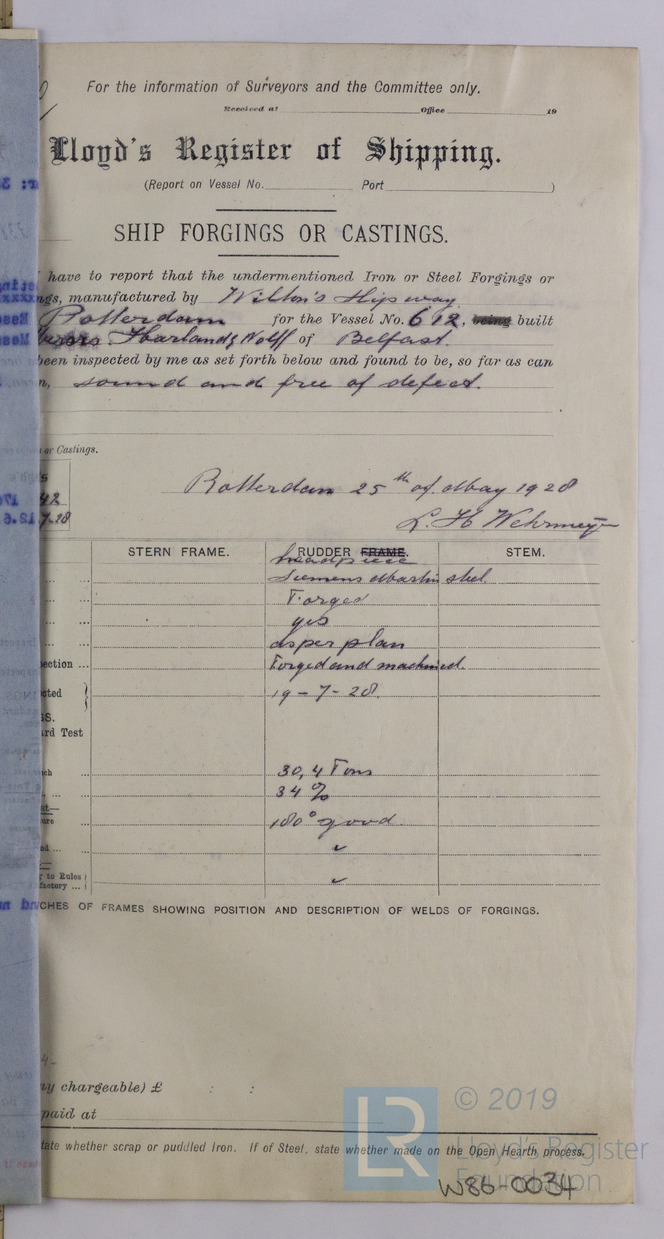 For the information of Surveyors and the Committee only.
Received at Office 19
Lloyd's Register of Shipping.
(Report on Vessel No. Port )
SHIP FORGINGS OR CASTINGS.
have to report that the undermentioned Iron or Steel Forgings or
ngs, manufactured by Wilton's Slipway
Rotterdam for the Vessel No. 612, being built
Harland & Wolff of Belfast.
been inspected by me as set forth below and found to be, so far as can
n, sound and free of defect.
or Castings.
Rotterdam 25th of May 1928
L. H. Wehrmeyer
STERN FRAME. RUDDER FRAME. STEM.
headpiece
Siemens Martin steel
Forged
yes
as per plan
ection ... Forged and machined.
ted 19-7-28.
GS.
rd Test
ich ... 30,4 Tons
34 %
ure ... 180° good
ed ... ✓
y to Rules
factory ... ✓
CHES OF FRAMES SHOWING POSITION AND DESCRIPTION OF WELDS OF FORGINGS.
ny chargeable) £ : :
paid at
tate whether scrap or puddled Iron. If of Steel, state whether made on the Open Hearth process.
© 2019
LR
Lloyd's Register
Foundation
W86-0034